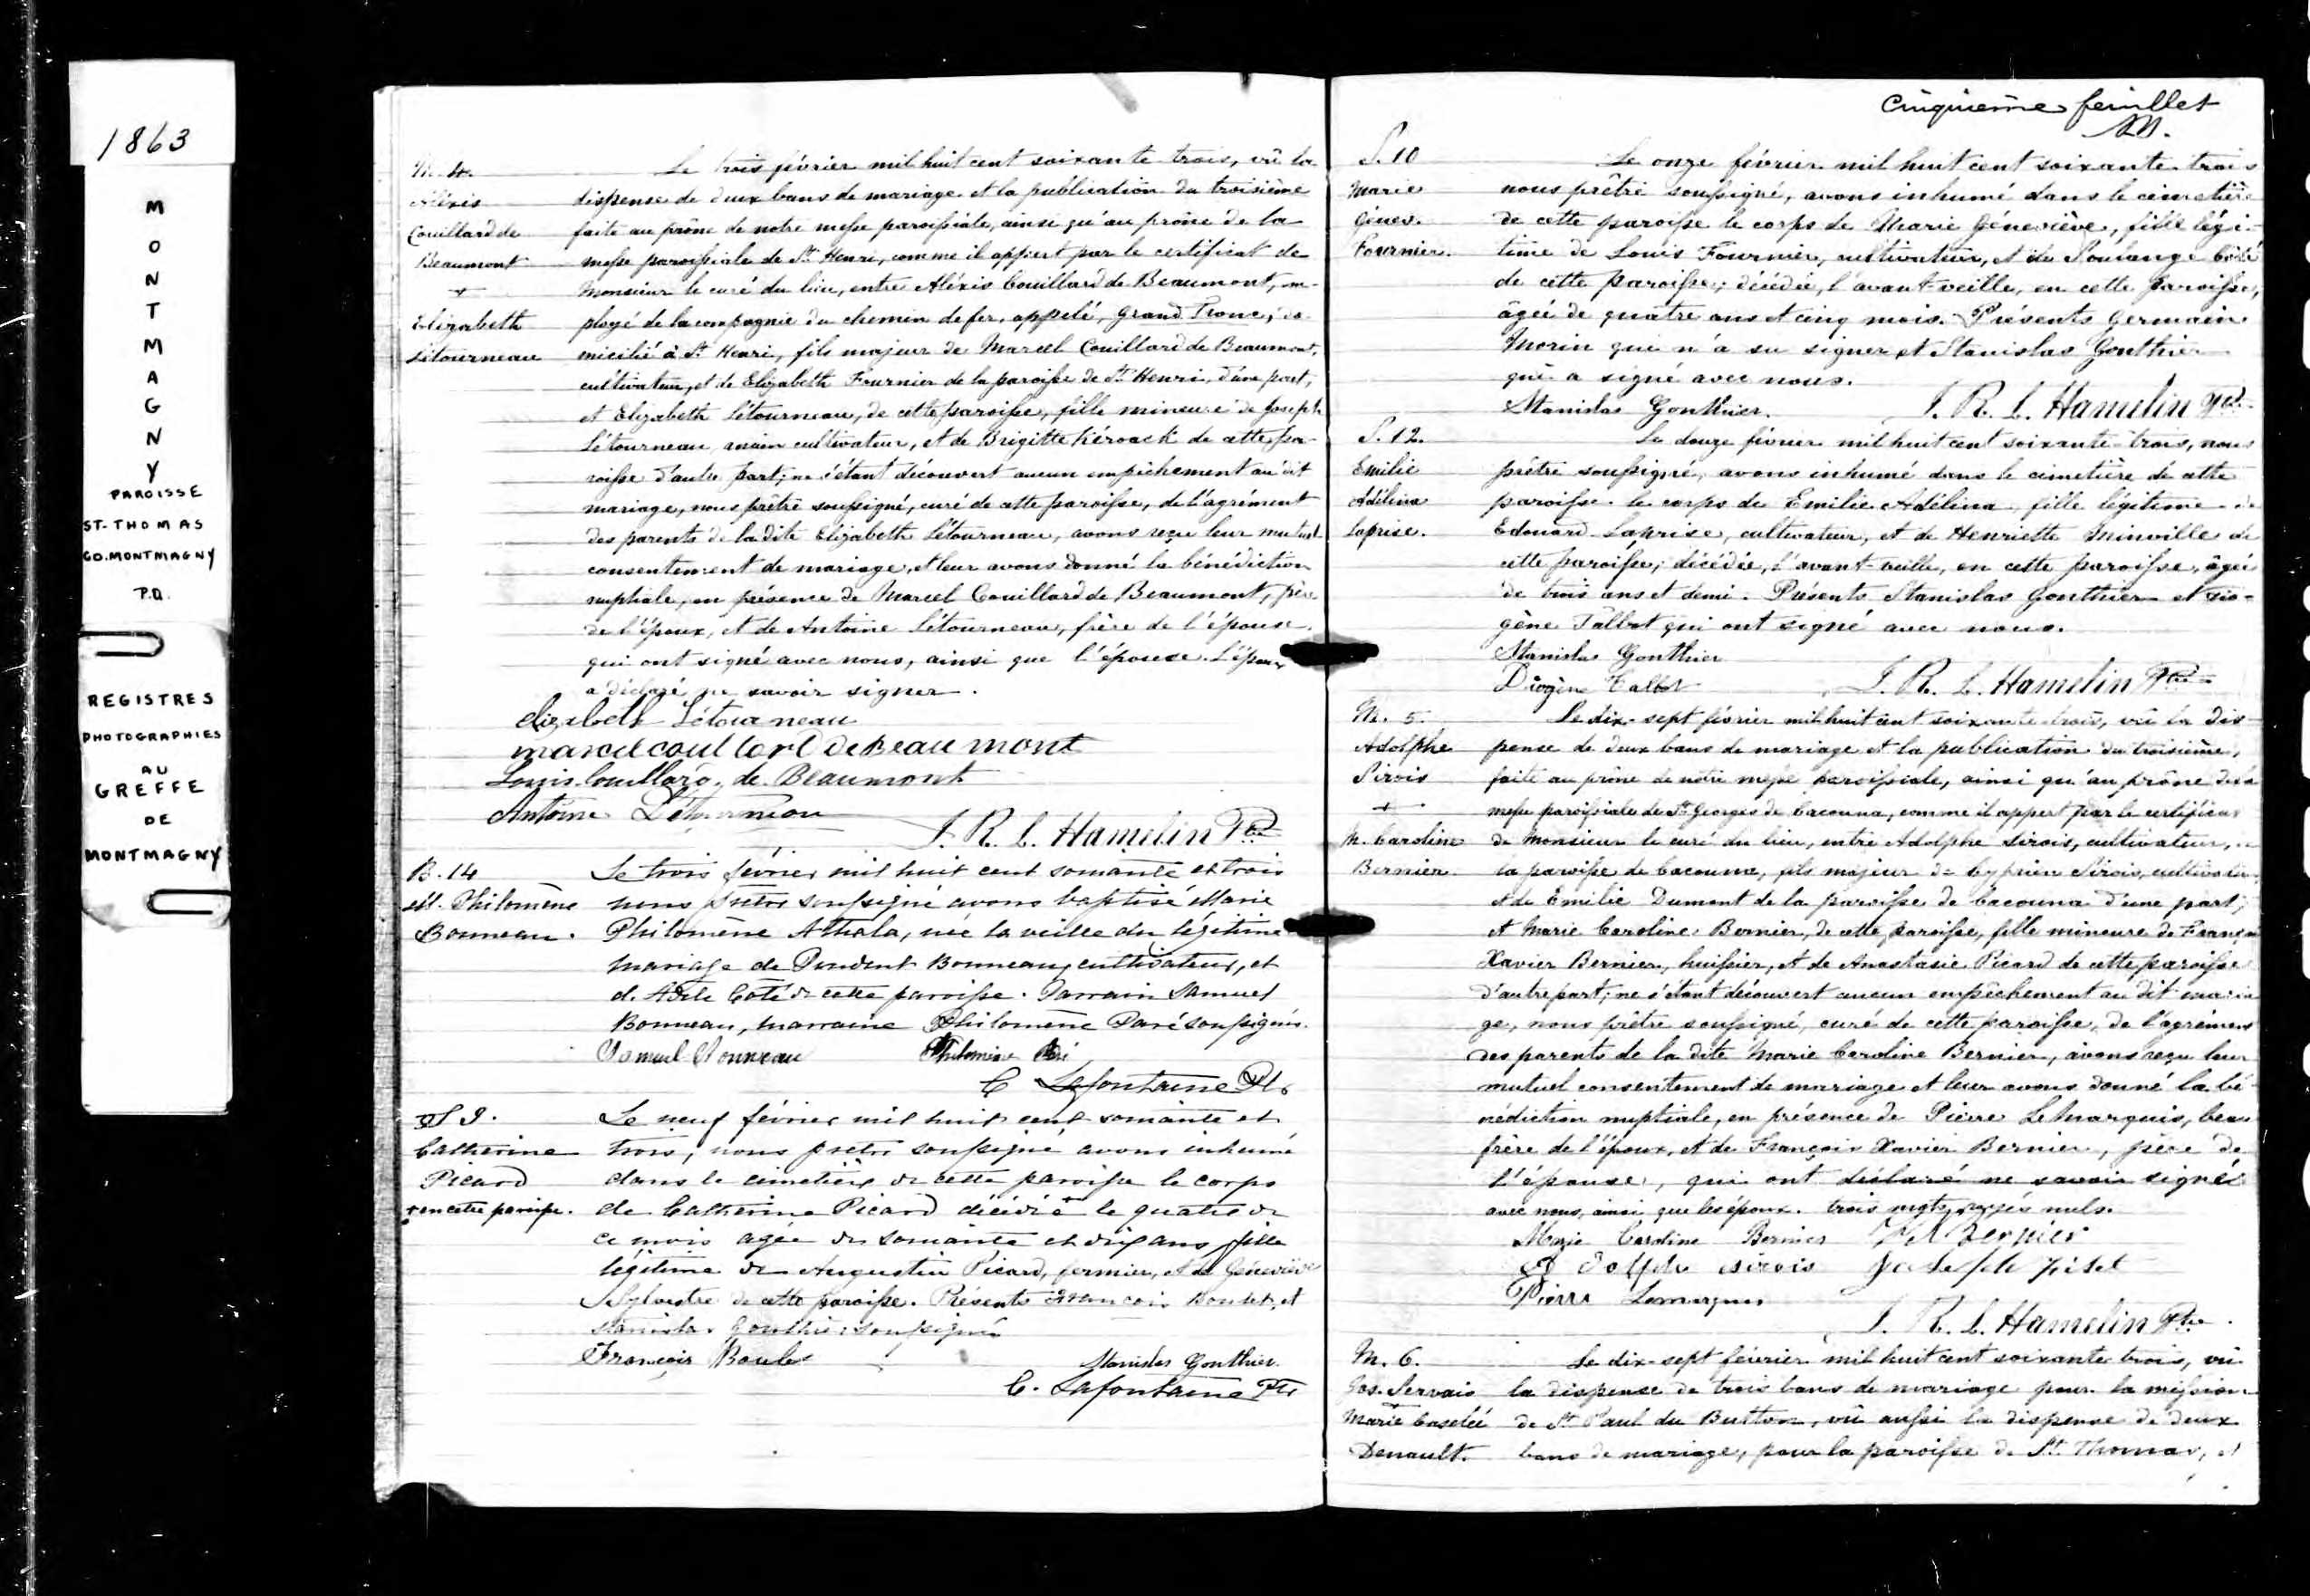 1863
MONTMAGNY
PAROISSE
ST-THOMAS
CO. MONTMAGNY
P.Q.
REGISTRES
PHOTOGRAPHIES
AU
GREFFE
DE
MONTMAGNY
M. 4.
Aléxis
Couillard de
Beaumont
+
Elizabeth
Létourneau
Le trois février mil huit cent soixante-trois, vû la
dispense de deux bans de mariage et la publication du troisième
faite au prône de notre messe paroissiale, ainsi qu'au prône de la
messe paroissiale de St. Henri, comme il appert par le certificat de
Monsieur le curé du lieu, entre Aléxis Couillard de Beaumont, em-
ployé de la compagnie du chemin de fer, appelé, Grand Tronc, do-
micilié à St. Henri, fils majeur de Marcel Couillard de Beaumont,
cultivateur, et de Elizabeth Fournier de la paroisse de St. Henri, d'une part,
et Elizabeth Létourneau, de cette paroisse, fille mineure de Joseph
Létourneau cultivateur, et de Brigitte Kéroack de cette pa-
roisse d'autre part; ne s'étant découvert aucun empêchement au dit
mariage, nous prêtre soussigné, curé de cette paroisse, de l'agrément
des parents de la dite Elizabeth Létourneau, avons reçu leur mutuel
consentement de mariage, et leur avons donné la bénédiction
nuptiale, en présence de Marcel Couillard de Beaumont, père
de l'époux, et de Antoine Létourneau, frère de l'épouse,
qui ont signé avec nous, ainsi que l'épouse. L'époux
a déclaré ne savoir signer.
Elizabeth Létourneau
marcel coullord de Beaumont
Louis Couillard de Beaumont
Antoine Létourneau
J. R. L. Hamelin Ptre
B. 14
M. Philomène
Bonneau.
Le trois février mil huit cent soixante et trois
nous prêtre soussigné avons baptisé Marie
Philomène Athala, née la veille du légitime
mariage de Prudent Bonneau, cultivateur, et
d'Adèle Coté de cette paroisse. Parrain Samuel
Bonneau, marraine Philomène Paré soussignés.
Samuel Bonneau Philomène Paré
C. Lafontaine Ptr
S 9.
Catherine
Picard
+ en cette paroisse.
Le neuf février mil huit cent soixante et
trois, nous prêtre soussigné avons inhumé
dans le cimetière de cette paroisse le corps
de Catherine Picard décédée + le quatre de
ce mois agée de soixante et dix ans fille
légitime de Augustin Picard, fermier, et de Géneviève
Sylvestre de cette paroisse. Présents François Boulet, et
Stanislas Gonthier soussignés
François Boulet Stanislas Gonthier.
C. Lafontaine Ptr
Cinquième feuillet
S. 10
Marie
Génev.
Fournier.
Le onze février mil huit cent soixante trois
nous prêtre soussigné, avons inhumé dans le cimetière
de cette paroisse le corps de Marie Géneviève, fille légi-
time de Louis Fournier, cultivateur, et de Soulange Côté
de cette paroisse; décédée, l'avant veille, en cette paroisse,
âgée de quatre ans et cinq mois. Présents Germain
Morin qui n'a su signer et Stanislas Gonthier
qui a signé avec nous.
Stanislas Gonthier. J. R. L. Hamelin Ptre
S. 12.
Emilie
Adélina
Laprise.
Le douze février mil huit cent soixante-trois, nous
prêtre soussigné, avons inhumé dans le cimetière de cette
paroisse le corps de Emilie Adélina, fille légitime de
Edouard Laprise, cultivateur, et de Henriette Minville de
cette paroisse; décédée, l'avant-veille, en cette paroisse, âgée
de trois ans et demi. Présents Stanislas Gonthier et Dio-
gène Talbot qui ont signé avec nous.
Stanislas Gonthier
Diogène Talbot J. R. L. Hamelin Ptre
M. 5.
Adolphe
Sirois
+
M. Caroline
Bernier.
Le dix-sept février mil huit cent soixante-trois, vû la dis-
pense de deux bans de mariage et la publication du troisième,
faite au prône de notre messe paroissiale, ainsi qu'au prône de la
messe paroissiale de St. Georges de Cacouna, comme il appert par le certificat
de Monsieur le curé du lieu, entre Adolphe Sirois, cultivateur, de
la paroisse de Cacouna, fils majeur de Cyprien Sirois, cultivateur
et de Emilie Dumont de la paroisse de Cacouna d'une part;
et Marie Caroline Bernier, de cette paroisse, fille mineure de François
Xavier Bernier, huissier, et de Anastasie Picard de cette paroisse
d'autre part; ne s'étant découvert aucun empêchement au dit maria-
ge, nous prêtre soussigné, curé de cette paroisse, de l'agrément
des parents de la dite Marie Caroline Bernier, avons reçu leur
mutuel consentement de mariage et leur avons donné la bé-
nédiction nuptiale, en présence de Pierre LeMarquis, beau
frère de l'époux, et de François Xavier Bernier, père de
l'épouse, qui ont déclaré ne savoir signé
avec nous, ainsi que les époux. trois mots rayés nuls.
Marie Caroline Bernier F X Bernier
Adolphe Sirois Joseph
Pierre Lemarquis
J. R. L. Hamelin Ptre.
M. 6.
Jos. Servais
+
Marie Caselée
Denault.
Le dix-sept février mil huit cent soixante trois, vû
la dispense de trois bans de mariage pour la mission
de St. Paul du Button, vû aussi la dispense de deux
bans de mariage, pour la paroisse de St. Thomas, et